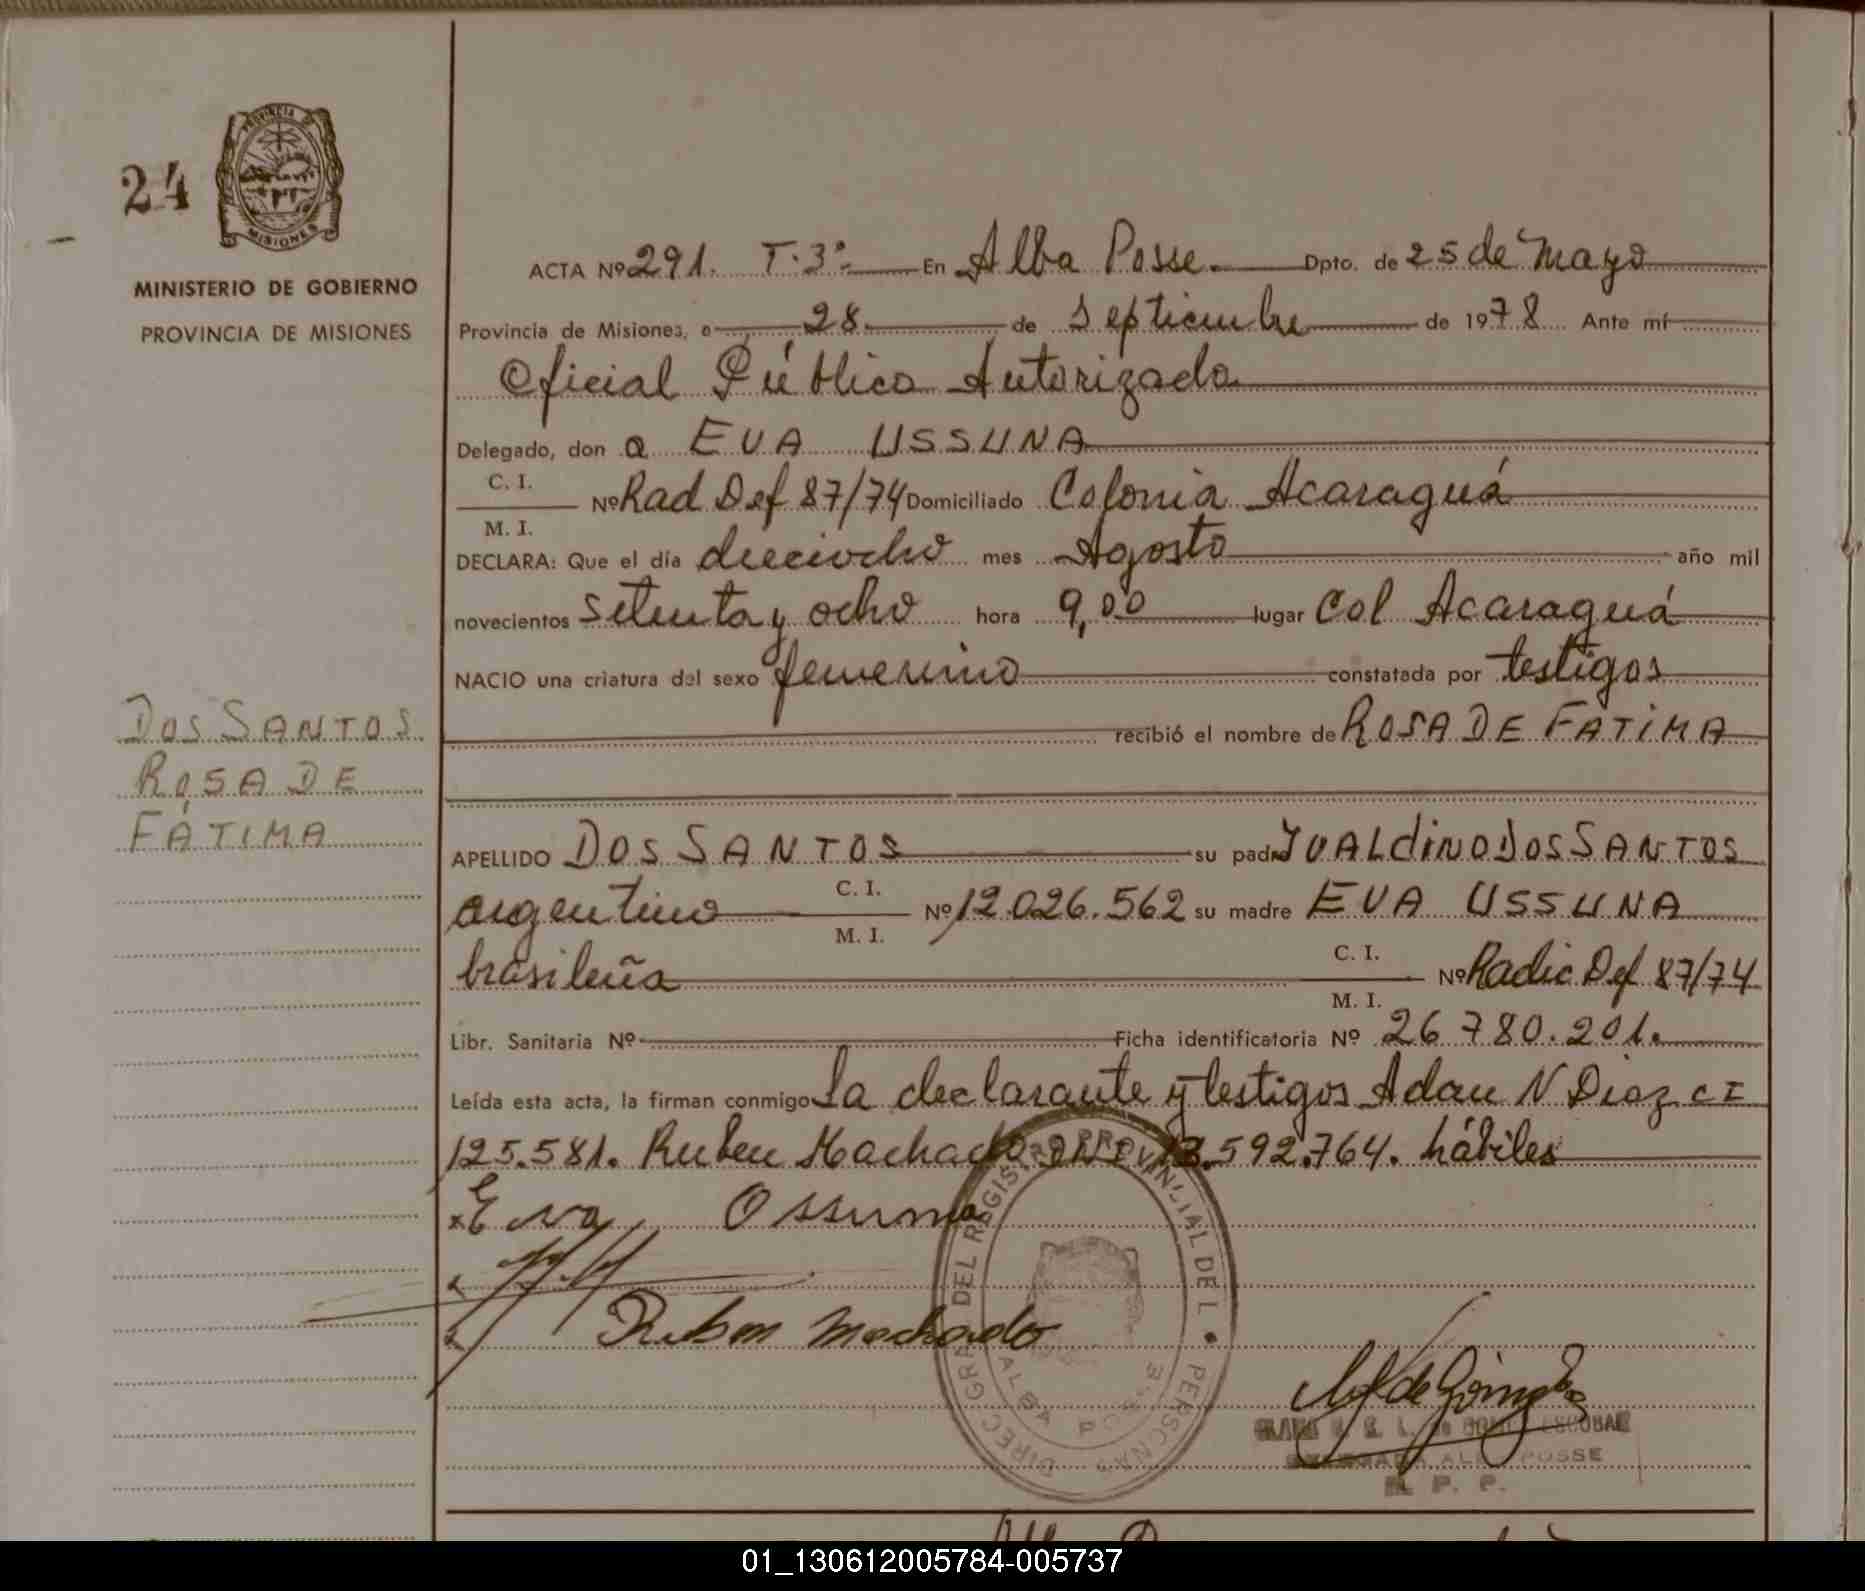 PROVINCIA DE
MISIONES
24
MINISTERIO DE GOBIERNO
PROVINCIA DE MISIONES
ACTA Nº 291. T. 3º En Alba Posse. Dpto. de 25 de Mayo
Provincia de Misiones, a 28 de Septiembre de 1978 Ante mí
Oficial Público Autorizado
Delegado, don a EVA USSUNA
C. I.
M. I.
Nº Rad Def 87/74 Domiciliado Colonia Acaraguá
DECLARA: Que el día dieciocho mes Agosto año mil
novecientos setenta y ocho hora 9,00 lugar Col Acaraguá
NACIO una criatura del sexo femenino constatada por testigos
recibió el nombre de ROSA DE FATIMA
DOS SANTOS
ROSA DE
FÁTIMA
APELLIDO DOS SANTOS su padre IVALdiNO DOS SANTOS
argentino C. I. M. I. Nº 12.026.562 su madre EVA USSUNA
brasileña C. I. M. I. Nº Radic Def 87/74
Libr. Sanitaria Nº Ficha identificatoria Nº 26 780.201.
Leída esta acta, la firman conmigo La declarante y testigos Adan N Diaz CI
125.581. Ruben Machado DNI 13.592.764. hábiles
x Eva Ossuna
Ruben Machado
DIREC. GRAL. DEL REGISTRO PROVINCIAL DE L PERSONAS
ALBA POSSE
ESCOBAR
ALBA POSSE
R. P. P.
01_130612005784-005737